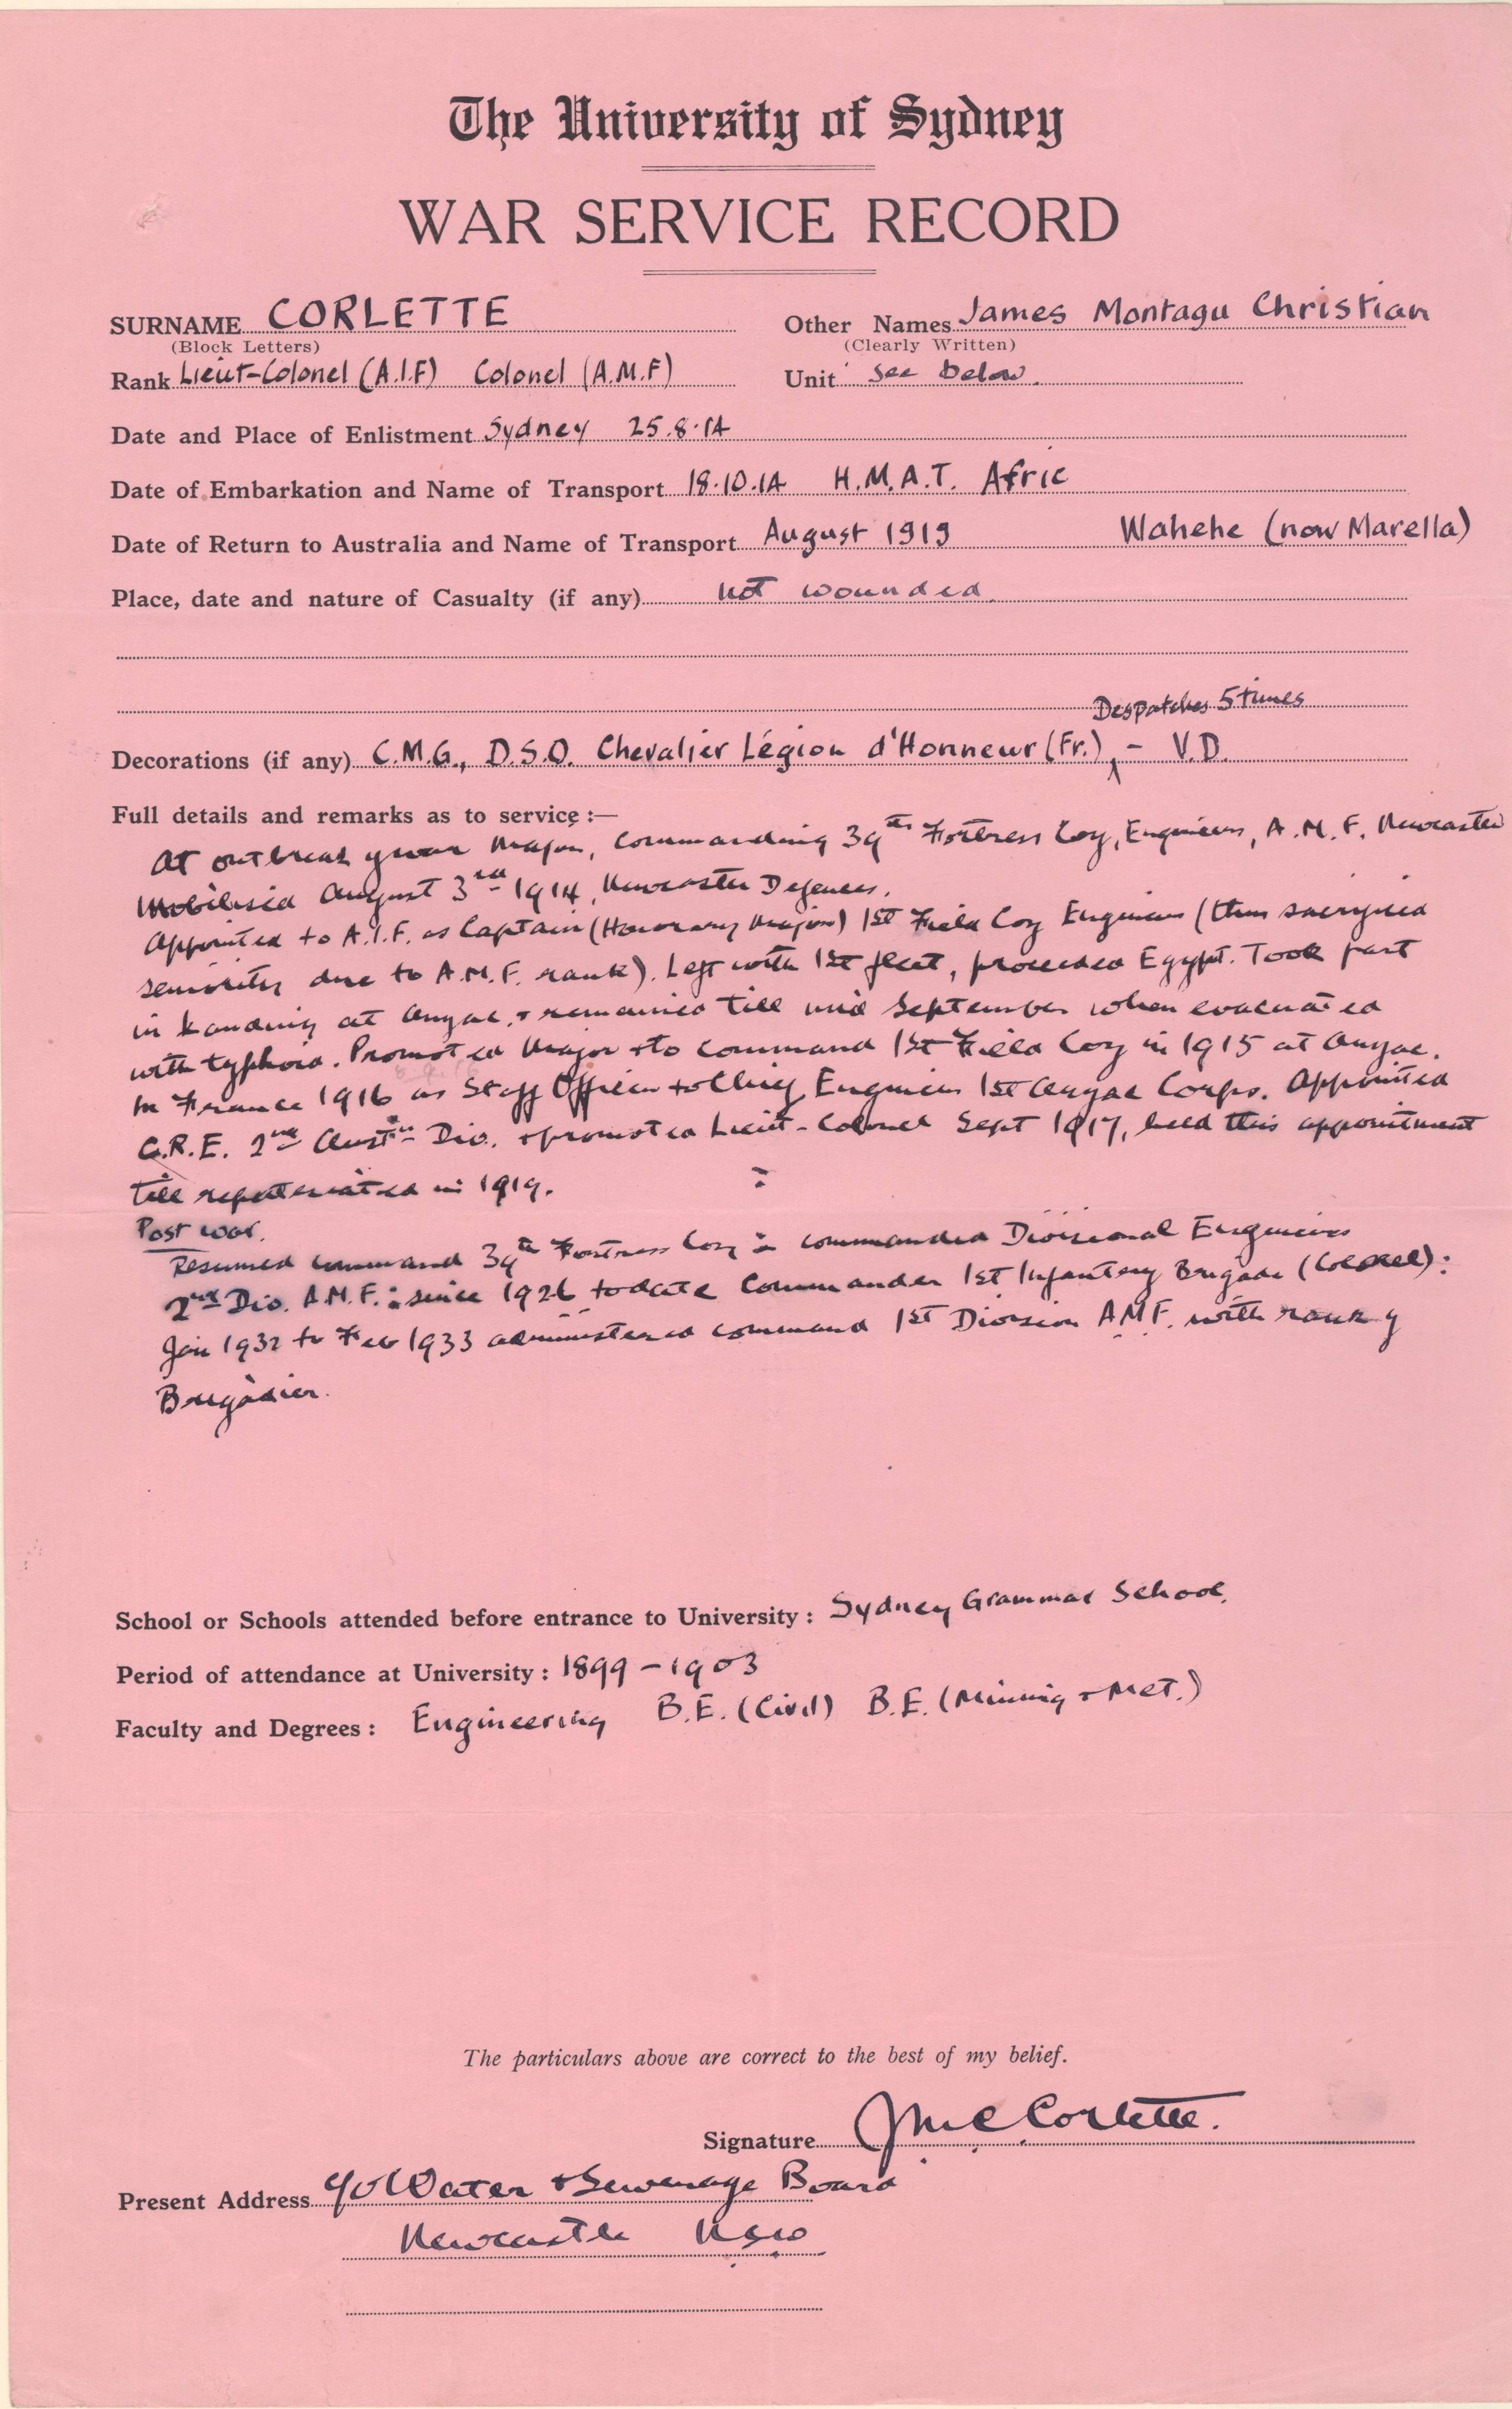 The University of Sydney
WAR SERVICE RECORD
SURNAME CORLETTE Other Names James Montagu Christian
(Block Letters) (Clearly Written)
Rank Lieut-Colonel (A.I.F) Colonel (A.M.F) Unit see below.
Date and Place of Enlistment Sydney 25.8.14
Date of Embarkation and Name of Transport 18.10.14 H.M.A.T. Afric
Date of Return to Australia and Name of Transport August 1919 Wahehe (now Marella)
Place, date and nature of Casualty (if any) not wounded.
Despatches 5 times
Decorations (if any) C.M.G., D.S.O. Chevalier Légion d'Honneur (Fr.) - V.D.
Full details and remarks as to service :—
At outbreak of war Major, Commanding 39th Fortress Coy, Engineers, A.M.F. Newcastle
Mobilised August 3rd 1914, Newcastle Defences.
Appointed to A.I.F. as Captain (Honorary Major) 1st Field Coy Engineers (thus sacrificed
seniority due to A.M.F. rank). Left with 1st fleet, proceeded Egypt. Took part
in landing at Anzac, & remained till mid September when evacuated
with typhoid. Promoted Major & to command 1st Field Coy in 1915 at Anzac.
In France 1916 as Staff Officer to Chief Engineer 1st Anzac Corps. Appointed
C.R.E. 2nd Austn Div. & promoted Lieut-Colonel Sept 1917, held this appointment
till repatriated in 1919.
Post war.
Resumed command 39th Fortress Coy : commanded Divisional Engineers
2nd Div. A.M.F. : since 1926 to date Commander 1st Infantry Brigade (Colonel):
Jan 1932 to Feb 1933 administered command 1st Division A.M.F. with rank of
Brigadier.
School or Schools attended before entrance to University : Sydney Grammar School.
Period of attendance at University : 1899 - 1903
Faculty and Degrees : Engineering B.E. (Civil) B.E. (Mining & Met.)
The particulars above are correct to the best of my belief.
Signature JMC Corlette.
Present Address c/o Water & Sewerage Board
Newcastle NSW